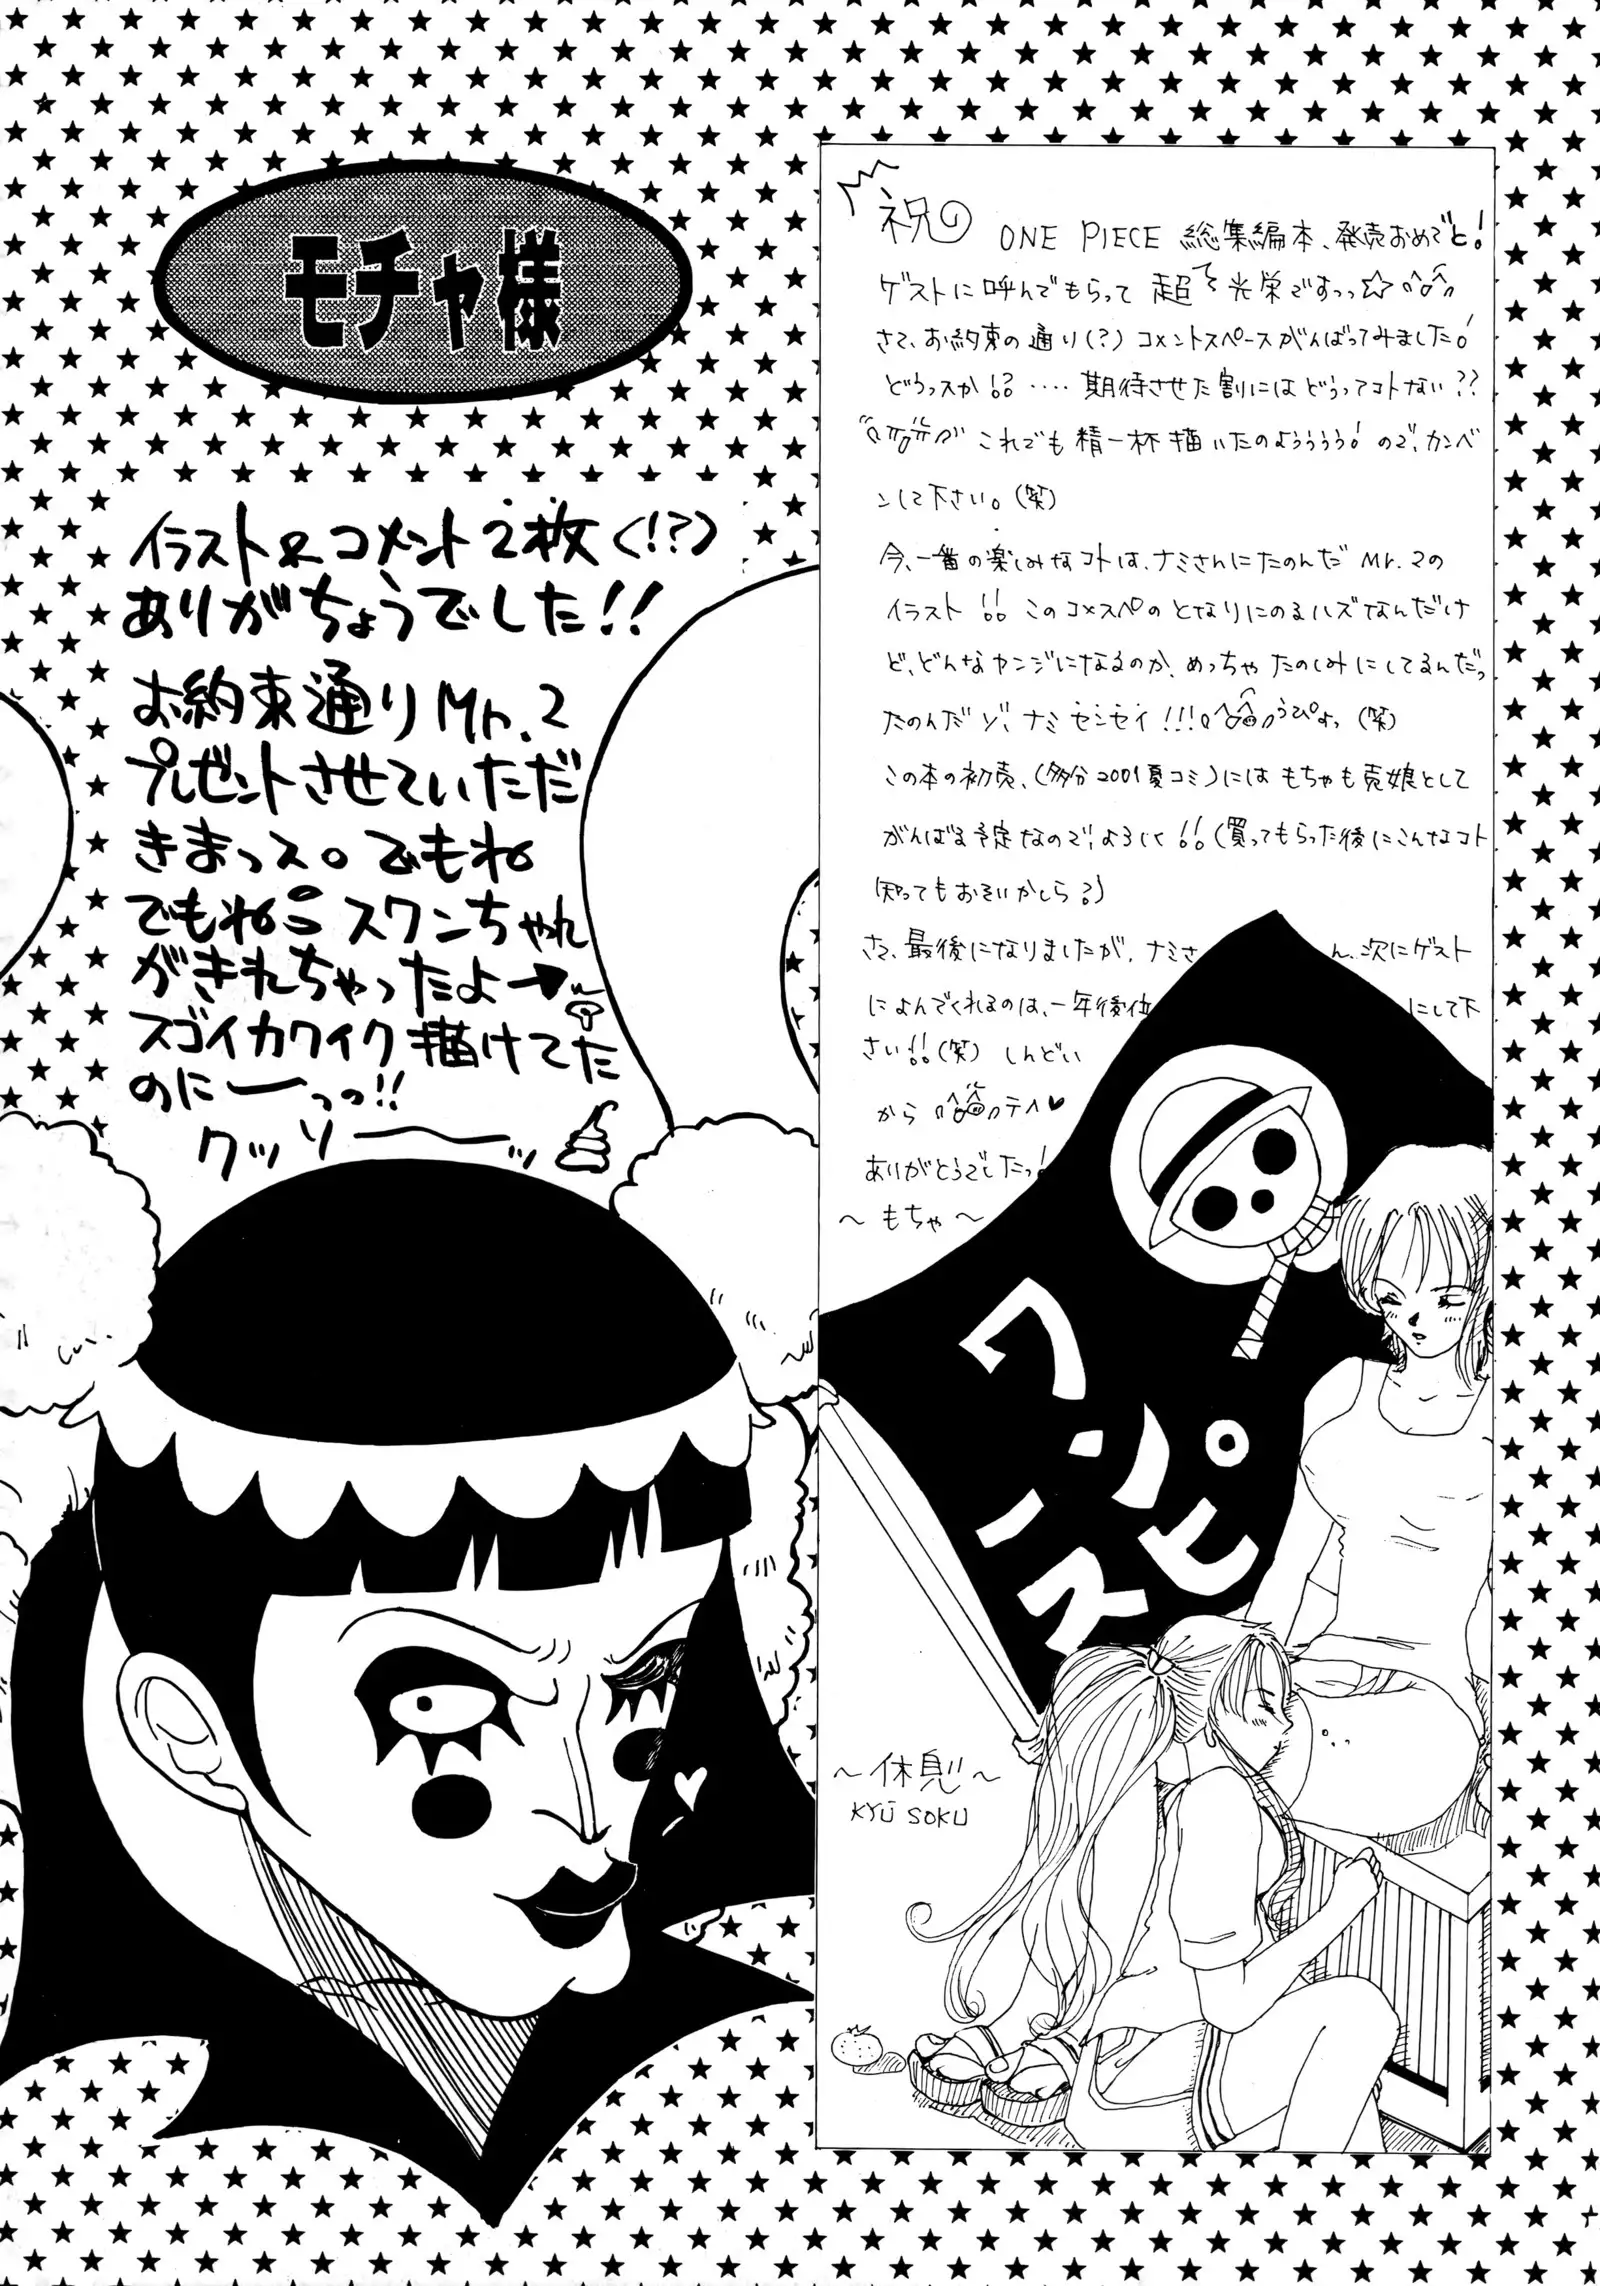 モチャ様
イラスト&コメント2枚(!?)
ありがちょうでした!!
お約束通りMr.2
プレゼントさせていただ
きまっス。でもね
でもね スワンちゃん
がきれちゃったよ→
スゴイカワイク描けてた
のにーっっ!!
クッソーーッ
祝 ONE PIECE 総集編本、発売おめでと!
ゲストに呼んでもらって超〜光栄ですっっ☆
さて、お約束の通り(?)コメントスペースがんばってみました!
どうっスか!? ‥‥期待させた割にはどうってコトない??
これでも精一杯描いたのようううう!ので、カンベ
ンして下さい。(笑)
今、一番の楽しみなコトは、ナミさんにたのんだMr.2の
イラスト!!このコメスペのとなりにのるハズなんだけ
ど、どんなカンジになるのか、めっちゃたのしみにしてるんだっ
たのんだゾ、ナミセンセイ!!! うぴょっ(笑)
この本の初売、(多分2001夏コミ)にはもちゃも売娘として
がんばる予定なので、よろしく!!(買ってもらった後にこんなコト
知ってもおそいかしら?)
さて、最後になりましたが、ナミさ ん、次にゲスト
によんでくれるのは、一年後位 にして下
さい!!(笑) しんどい
から テヘ♥
ありがとうでしたっ!
〜もちゃ〜
ワンピース
〜休息〜
KYŪ SOKU